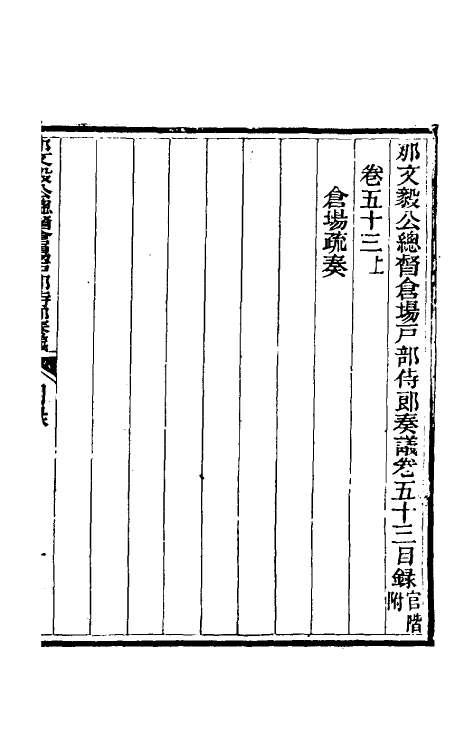 那文毅公總督倉場戸部侍郎奏議卷五十三目録官階附
卷五十三上
倉場疏奏
那文毅公總督倉場戸部侍郎奏議
目録